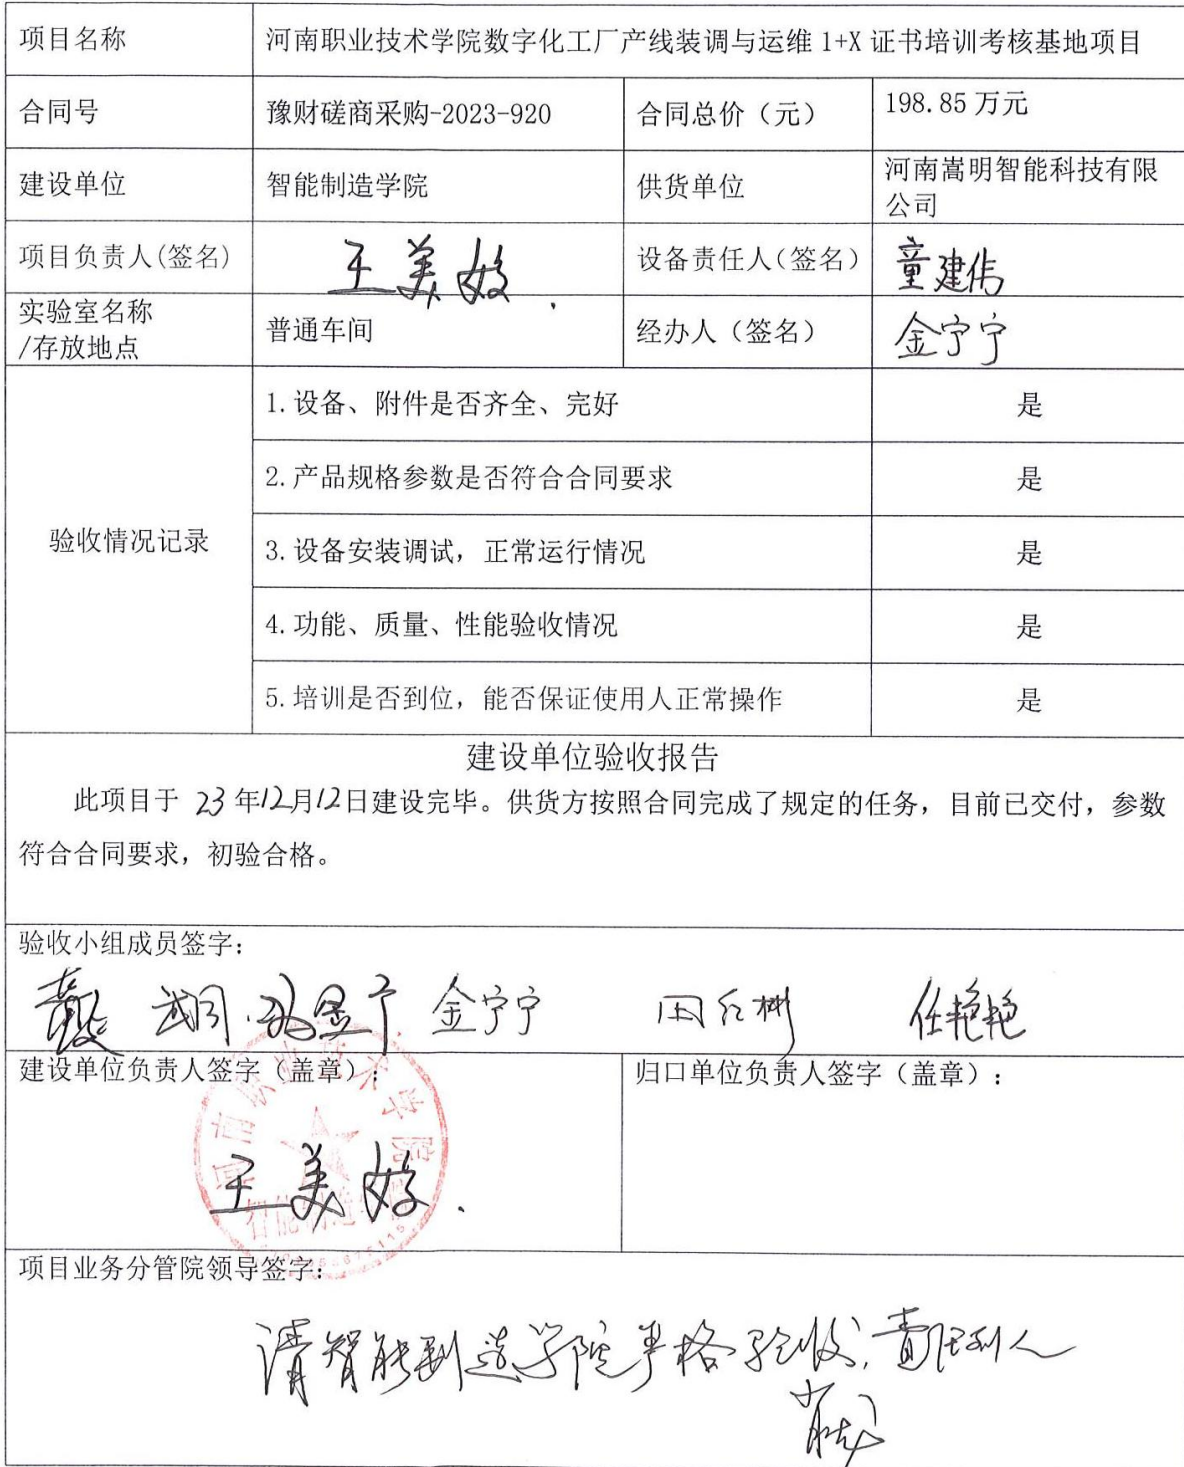 项目名称 河南职业技术学院数字化工厂产线装调与运维 1+X 证书培训考核基地项目
合同号 豫财磋商采购-2023-920 合同总价（元） 198.85 万元
建设单位 智能制造学院 供货单位 河南嵩明智能科技有限
公司
项目负责人(签名) 王美姣 设备责任人(签名) 童建伟
实验室名称
/存放地点 普通车间 经办人（签名） 金宁宁
验收情况记录
1.设备、附件是否齐全、完好 是
2.产品规格参数是否符合合同要求 是
3.设备安装调试，正常运行情况 是
4.功能、质量、性能验收情况 是
5.培训是否到位，能否保证使用人正常操作 是
建设单位验收报告
此项目于 23 年12月12日建设完毕。供货方按照合同完成了规定的任务，目前已交付，参数
符合合同要求，初验合格。
验收小组成员签字：
金宁宁 任艳艳
建设单位负责人签字（盖章）： 归口单位负责人签字（盖章）：
河南职业技术学院
王美姣
智能制造学院
项目业务分管院领导签字：
请智能制造学院严格验收，责任到人